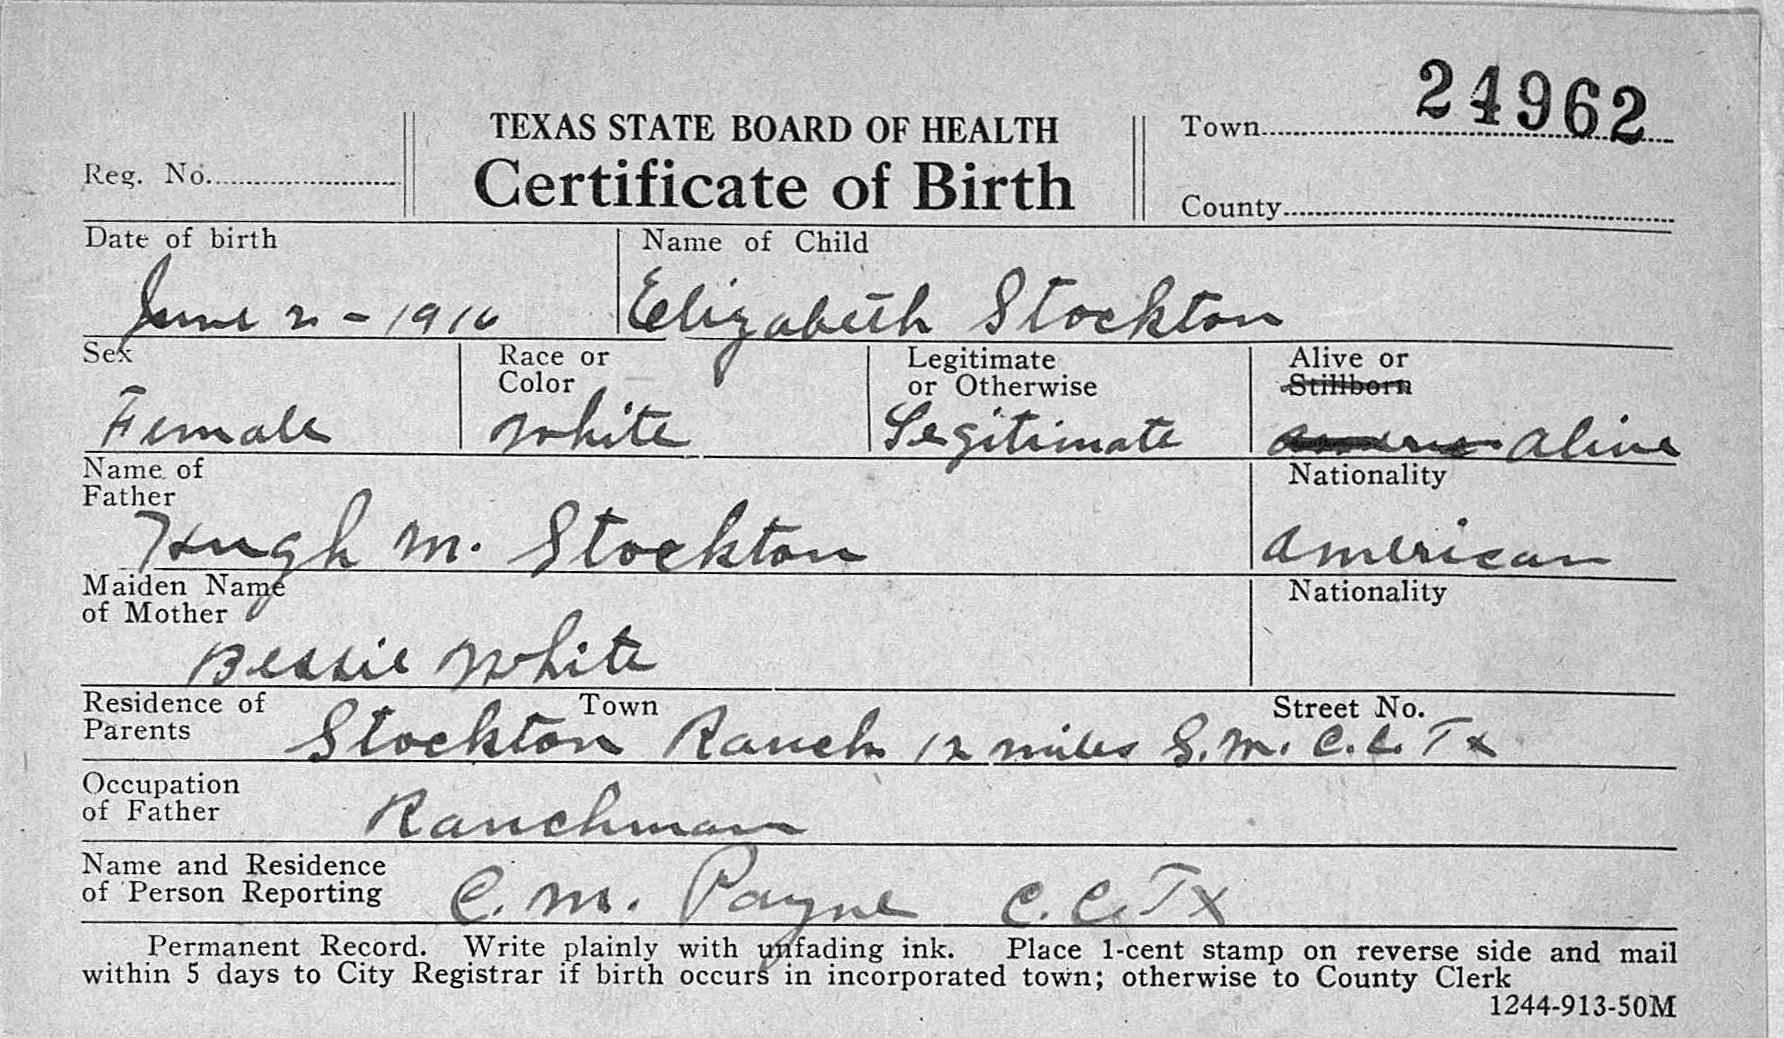 24962
TEXAS STATE BOARD OF HEALTH
Town
Reg. No.
Certificate of Birth
County
Date of birth
Name of Child
June 2 - 1916
Elizabeth Stockton
Sex
Race or Color
Legitimate or Otherwise
Alive or Stillborn
Female
White
Legitimate
Alive
Name of Father
Nationality
Hugh M. Stockton
American
Maiden Name of Mother
Nationality
Bessie White
Residence of Parents
Town
Street No.
Stockton Ranch 12 miles S. C. C. Tx
Occupation of Father
Ranchman
Name and Residence of Person Reporting
C. M. Payne C. C. Tx
Permanent Record. Write plainly with unfading ink. Place 1-cent stamp on reverse side and mail
within 5 days to City Registrar if birth occurs in incorporated town; otherwise to County Clerk
1244-913-50M